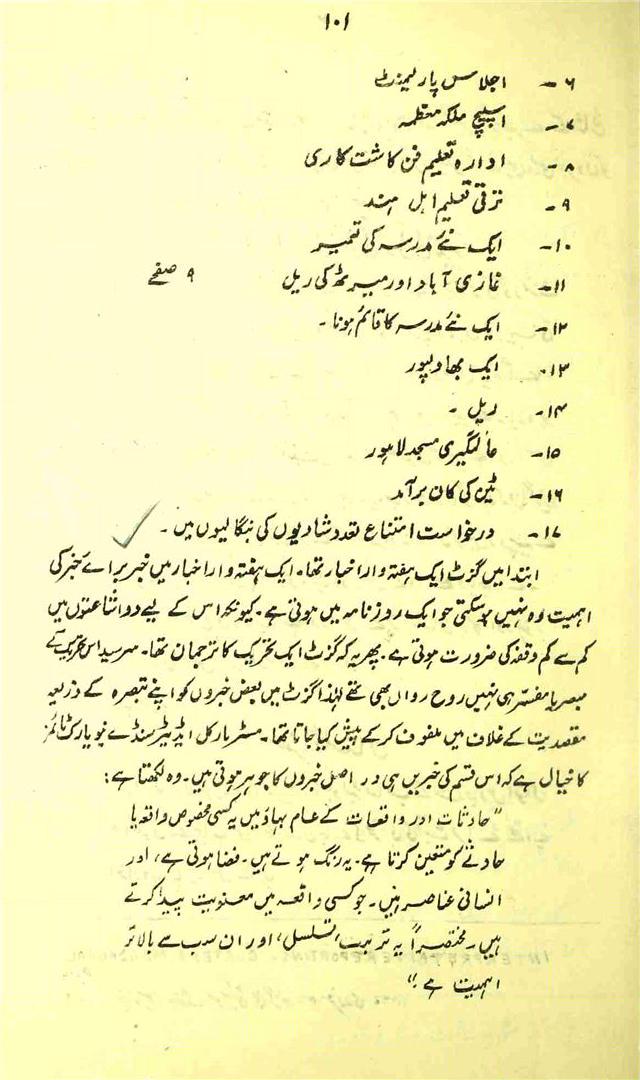 ۱۰۱
۶ - اجلاس پارلیمنٹ
۷ - اسپیچ ملکہ معظمہ
۸ - ادارہ تعلیم فن کاشت کاری
۹ - ترقی تعلیم اہل ہند
۱۰ - ایک نئے مدرسہ کی تعمیر
۱۱ - غازی آباد اور میرٹھ کی ریل ۹ صفحے
۱۲ - ایک نئے مدرسہ کا قائم ہونا -
۱۳ - ایک بھاولپور
۱۴ - ریل -
۱۵ - عالمگیری مسجد لاہور
۱۶ - ٹین کی کان برآمد
۱۷ - درخواست امتناع تعدد شادیوں کی بنگالیوں میں -
ابتدا میں گزٹ ایک ہفتہ وار اخبار تھا۔ ایک ہفتہ وار اخبار میں خبر برائے خبر کی
اہمیت وہ نہیں ہو سکتی جو ایک روزنامہ میں ہوتی ہے۔ کیونکہ اس کے لیے دو اشاعتوں میں
کم سے کم وقفہ کی ضرورت ہوتی ہے۔ پھر یہ کہ گزٹ ایک تحریک کا ترجمان تھا۔ سرسید اس تحریک کے
مبصر یا مفسر ہی نہیں روح رواں بھی تھے لہٰذا گزٹ میں بعض خبروں کو اپنے تبصرہ کے ذریعہ
مقصدیت کے غلاف میں ملفوف کر کے پیش کیا جاتا تھا۔ مسٹر مارکل ایڈیٹر سنڈے نیویارک ٹائمز
کا خیال ہے کہ اس قسم کی خبریں ہی در اصل خبروں کا جوہر ہوتی ہیں۔ وہ لکھتا ہے :
"حادثات اور واقعات کے عام بہاؤ میں یہ کسی مخصوص واقعہ یا
حادثے کو متعین کرتا ہے۔ یہ رنگ ہوتے ہیں۔ فضا ہوتی ہے، اور
انسانی عناصر ہیں۔ جو کسی واقعہ میں معنویت پیدا کرتے
ہیں۔ مختصراً یہ ترتیب، تسلسل، اور ان سب سے بالاتر
اہمیت ہے۔"